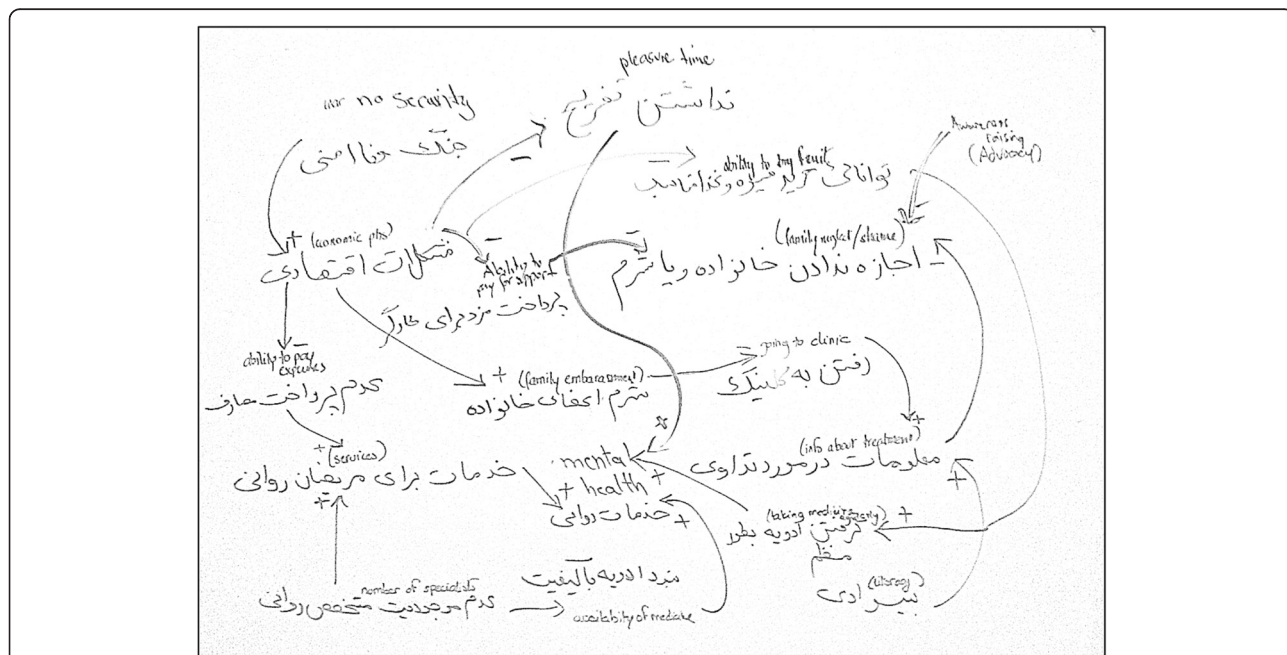 pleasure time
نداشتن تفریح
no security
جنگ و نا امنی
Awareness
raising
(Advocacy)
ability to buy fruit
توانائی خرید میوه و غذا مناسب
+
(economic pbs)
مشکلات اقتصادی
Ability to
pay for support
پرداخت مزد برای کارگر
(family neglect/shame)
اجازه ندادن خانواده و یا شرم
ability to pay
expenses
عدم پرداخت مصارف
+ (family embarassment)
شرم اعضای خانواده
going to clinic
رفتن به کلینیک
+ (services)
خدمات برای مریضان روانی
+
mental
+ health +
خدمات روانی +
(info about treatment) +
معلومات در مورد تداوی
+
(taking medicine regularly) +
گرفتن ادویه بطور
منظم
(literacy)
بیسوادی
number of specialists
عدم موجودیت متخصص روانی
ادویه باکیفیت
availability of medicine